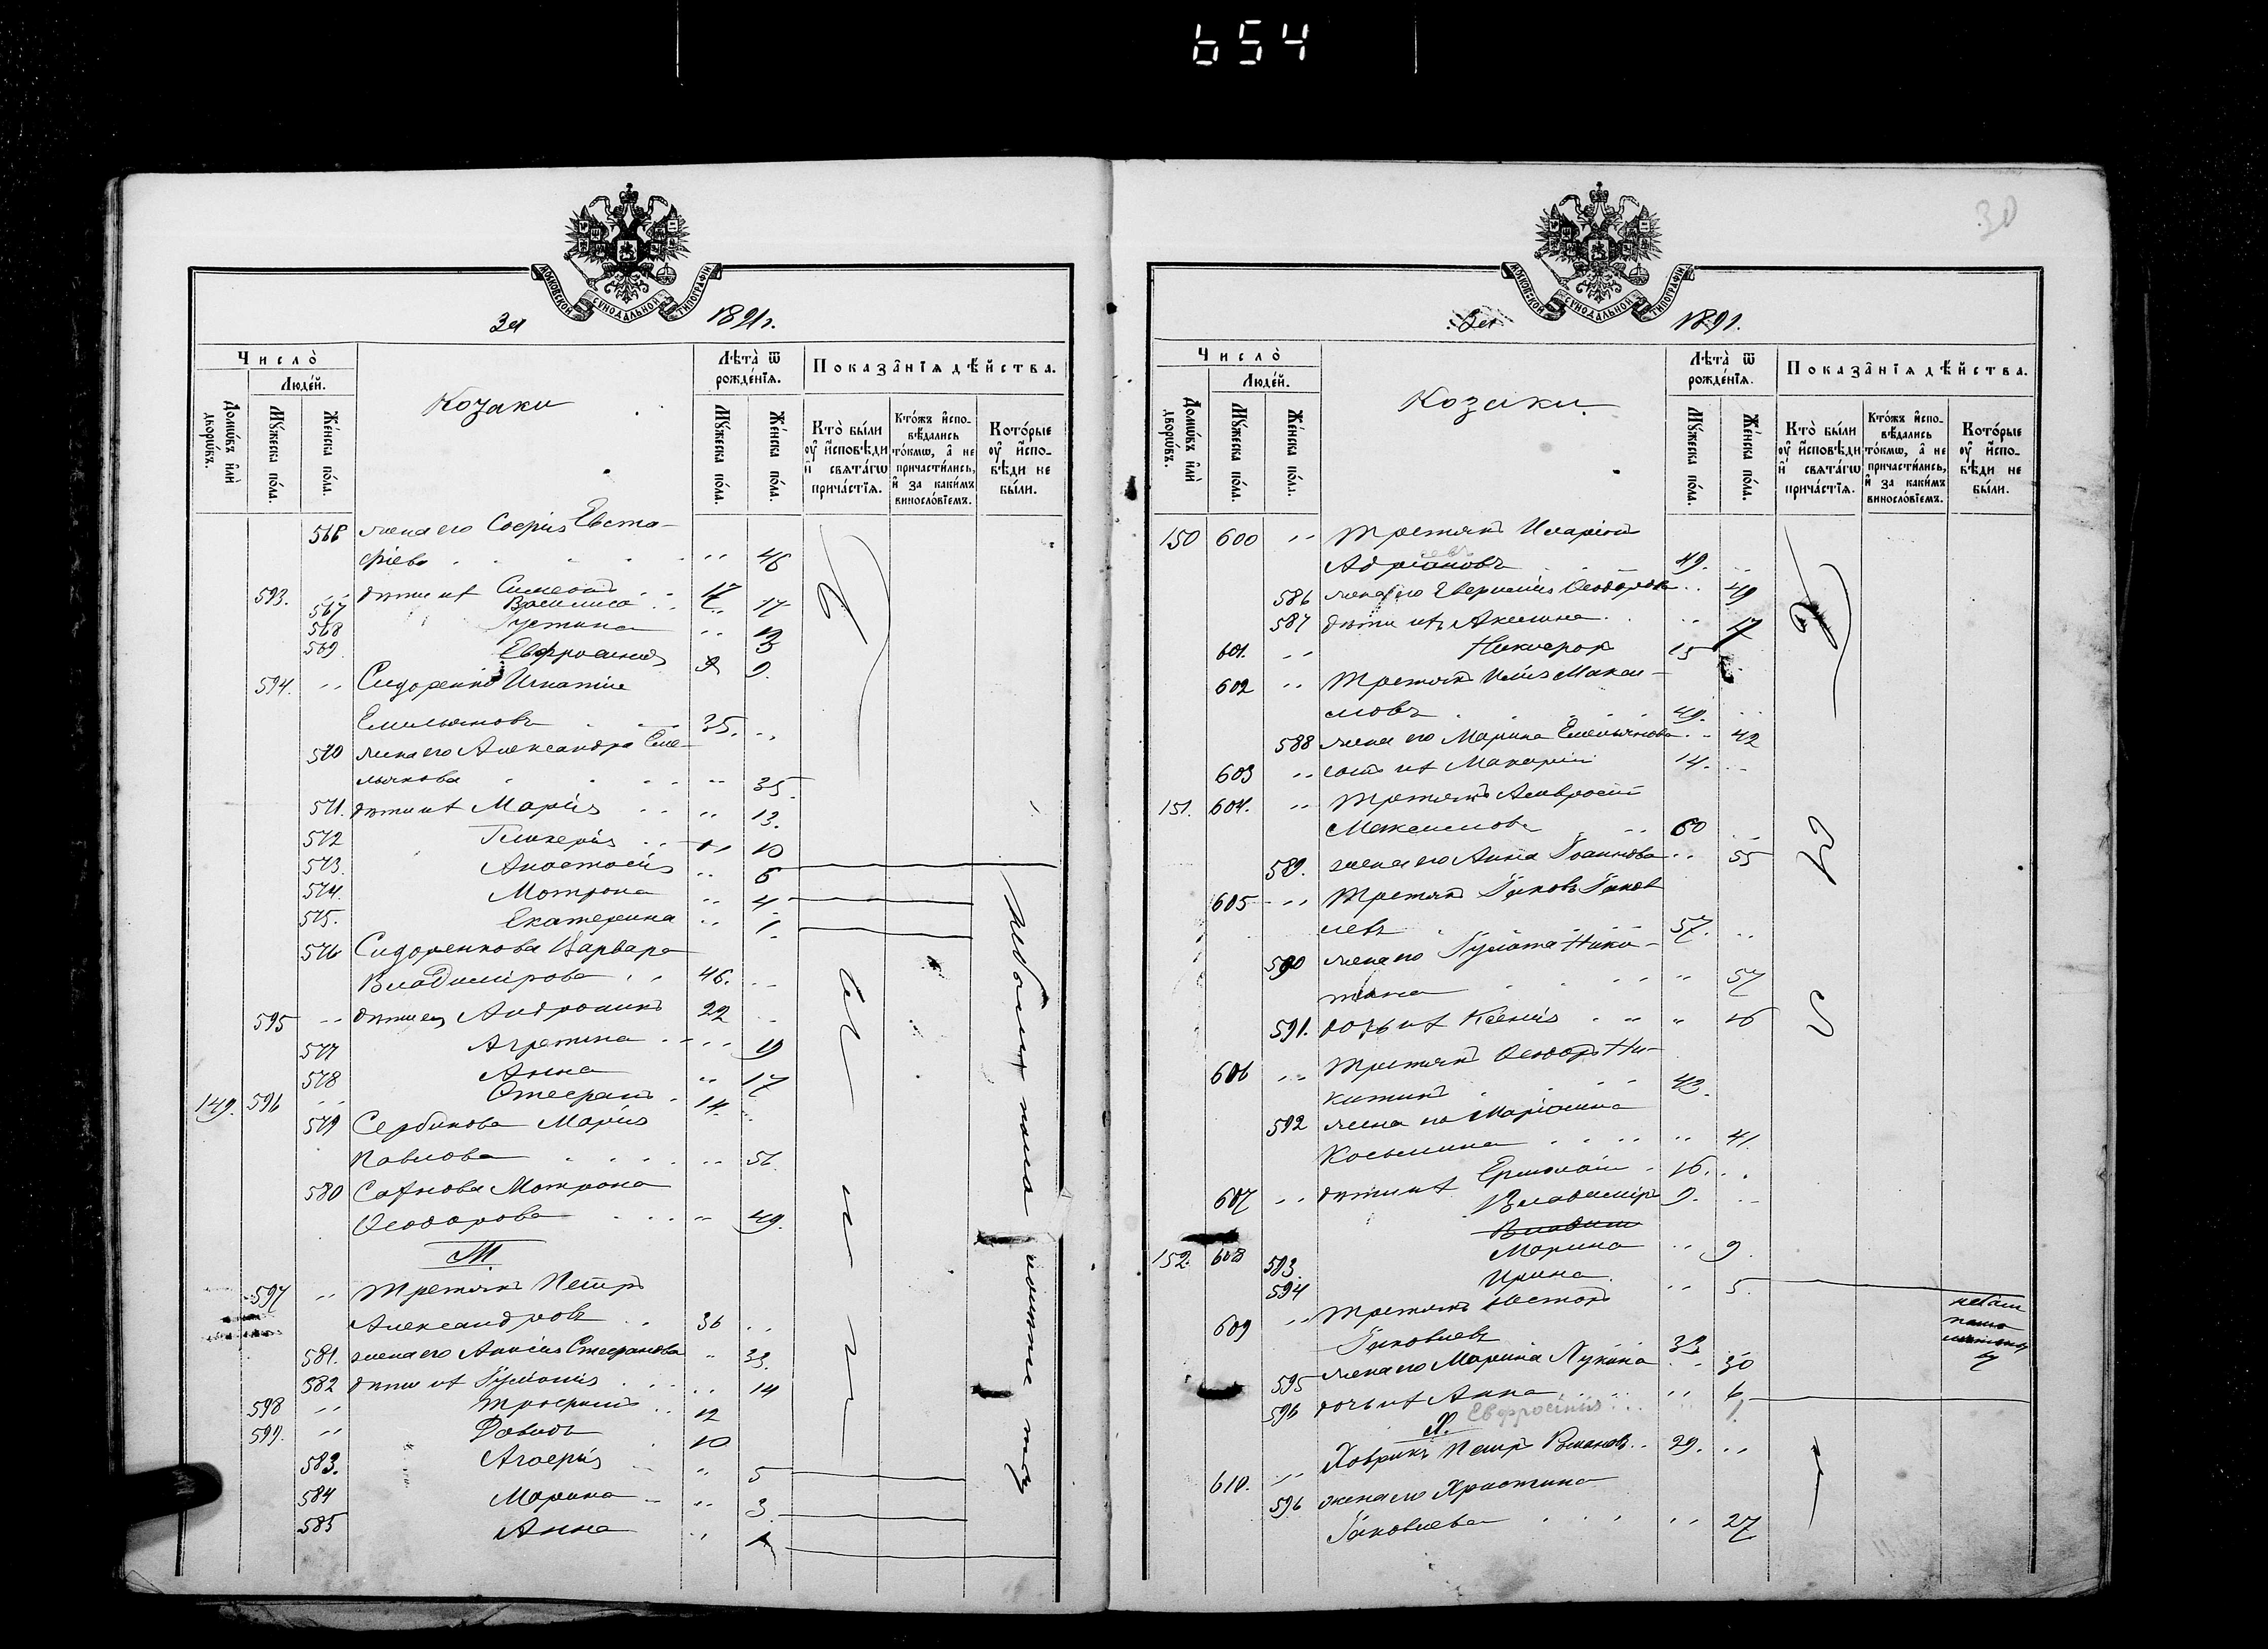 654
За 1891г.
МОСКОВСКОЙ СѴНОДАЛЬНОЙ ТИПОГРАФІИ
Число̀
Людей.
Домѡвъ и҆лѝ дворѡвъ.
Мꙋжеска по́ла.
Же́нска по́ла.
Козаки
Лѣта̀ ѿ рожде́нїѧ.
Мꙋжеска по́ла.
Же́нска по́ла.
Показа̑нїѧ дѣ́йства.
Кто̀ бы́ли оу҆ и҆сповѣди и҆ свѧта́гѡ прича́стїѧ.
Кто́жъ и҆спо-вѣ́дались то́кмѡ, а҆ не причасти́лись, и҆ за каки́мъ виносло́вїемъ.
Кото́рые оу҆ и҆спо-вѣди не бы́ли.
566 жена его Софія Евста-
фіева .. 46
593. .. дѣти ихъ Симеонъ 17
567 Василиса .. 17
568 Іустина .. 13
569 Евфросинія 9
594. .. Сидоренко Игнатій
Емельяновъ 35. ..
570 жена его Александра Еме-
льянова .. 35.
571. дѣти ихъ Марія .. 13.
572 Гликерія .. 10
573. Анастасія .. 6
574. Мотрона .. 4.
575. Екатерина .. 1.
576 Сидоренкова Варвара
Владимірова 46. ..
595 .. дѣти ея Андроникъ 22
577 Агрипина .. 19
578 Анна .. 17
149. 596 .. Стефанъ 14.
579 Сербинова Марія
Павлова .. 56.
580 Мотрона
Ѳеодорова .. 49.
597 .. Третякъ Петръ
Александровъ 36 ..
581. жена его Анисія Стефанова .. 33.
582 дѣти ихъ Іуліанія .. 14
598 .. Трофимъ 12
599. .. Давидъ 10
583. Агафія .. 5
584 Марина .. 3.
585 Анна .. 1
30
За 1891.
МОСКОВСКОЙ СѴНОДАЛЬНОЙ ТИПОГРАФІИ
Число̀
Людей.
Домѡвъ и҆лѝ дворѡвъ.
Мꙋжеска по́ла.
Же́нска по́ла.
Козаки.
Лѣта̀ ѿ рожде́нїѧ.
Мꙋжеска по́ла.
Же́нска по́ла.
Показа̑нїѧ дѣ́йства.
Кто̀ бы́ли оу҆ и҆сповѣди и҆ свѧта́гѡ прича́стїѧ.
Кто́жъ и҆спо-вѣ́дались то́кмѡ, а҆ не причасти́лись, и҆ за каки́мъ виносло́вїемъ.
Кото́рые оу҆ и҆спо-вѣди не бы́ли.
150 600 .. Третякъ Иларіонъ
Адріановъ 49. ..
586 жена его Евфимія Ѳеодорова .. 49
587 дѣти ихъ Акилина .. 17
601. .. Никифоръ 15 ..
602 .. Третякъ Илія Макси-
мовъ 49. ..
588 жена его Марина Емельянова .. 42
603 .. сынъ ихъ Макарій 14. ..
151. 604. .. Третякъ Амвросій
Максимовъ 60 ..
589. жена его Анна Іоаннова .. 55
605 .. Третякъ Іаковъ Іаков
левъ 57. ..
590 жена его Іулита Ники-
тина .. 57
591. дочь ихъ Ксенія .. 16
606 .. Третякъ Ѳеодоръ Ни-
китинъ 42.
592 жена его Маріанна
Косьмина .. 41
607 .. дѣти ихъ Ермолай 16. ..
152. 608 Владиміръ 9. ..
Владим
593. Марина .. 9.
594 Ирина .. 5.
609 .. Третякъ Несторъ
Іаковлевъ 33
595 жена его Марина Лукина .. 30
596 дочь ихъ Анна .. 6
Евфросинія .. 1.
Х.
610. .. Ховрикъ Петръ Романовъ 29. ..
596 жена его Христина
Іаковлева .. 27